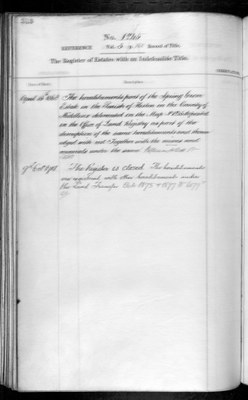 No. 1745
REFERENCE Vol. 3 p. Record of Title.
The Register of Estates with an Indefeasible Title.
Description.
The hereditaments part of the Spring Grove
Estate in the Parish of Heston in the County of
Middlesex delineated on the Map deposited
in the Office of Land Registry as part of the
description of the same hereditaments and therein
edged with red Together with the mines and
minerals under the same
The Register is closed. The hereditaments
are registered with other hereditaments under
the Land Transfer Acts 1875 & 1897 No